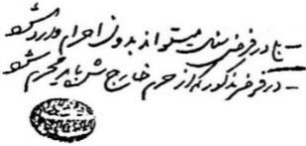 - ج در فرض سؤال میتواند بدون احرام وارد شود
- در فرض مذکور که از حرم خارج شد باید محرم شود